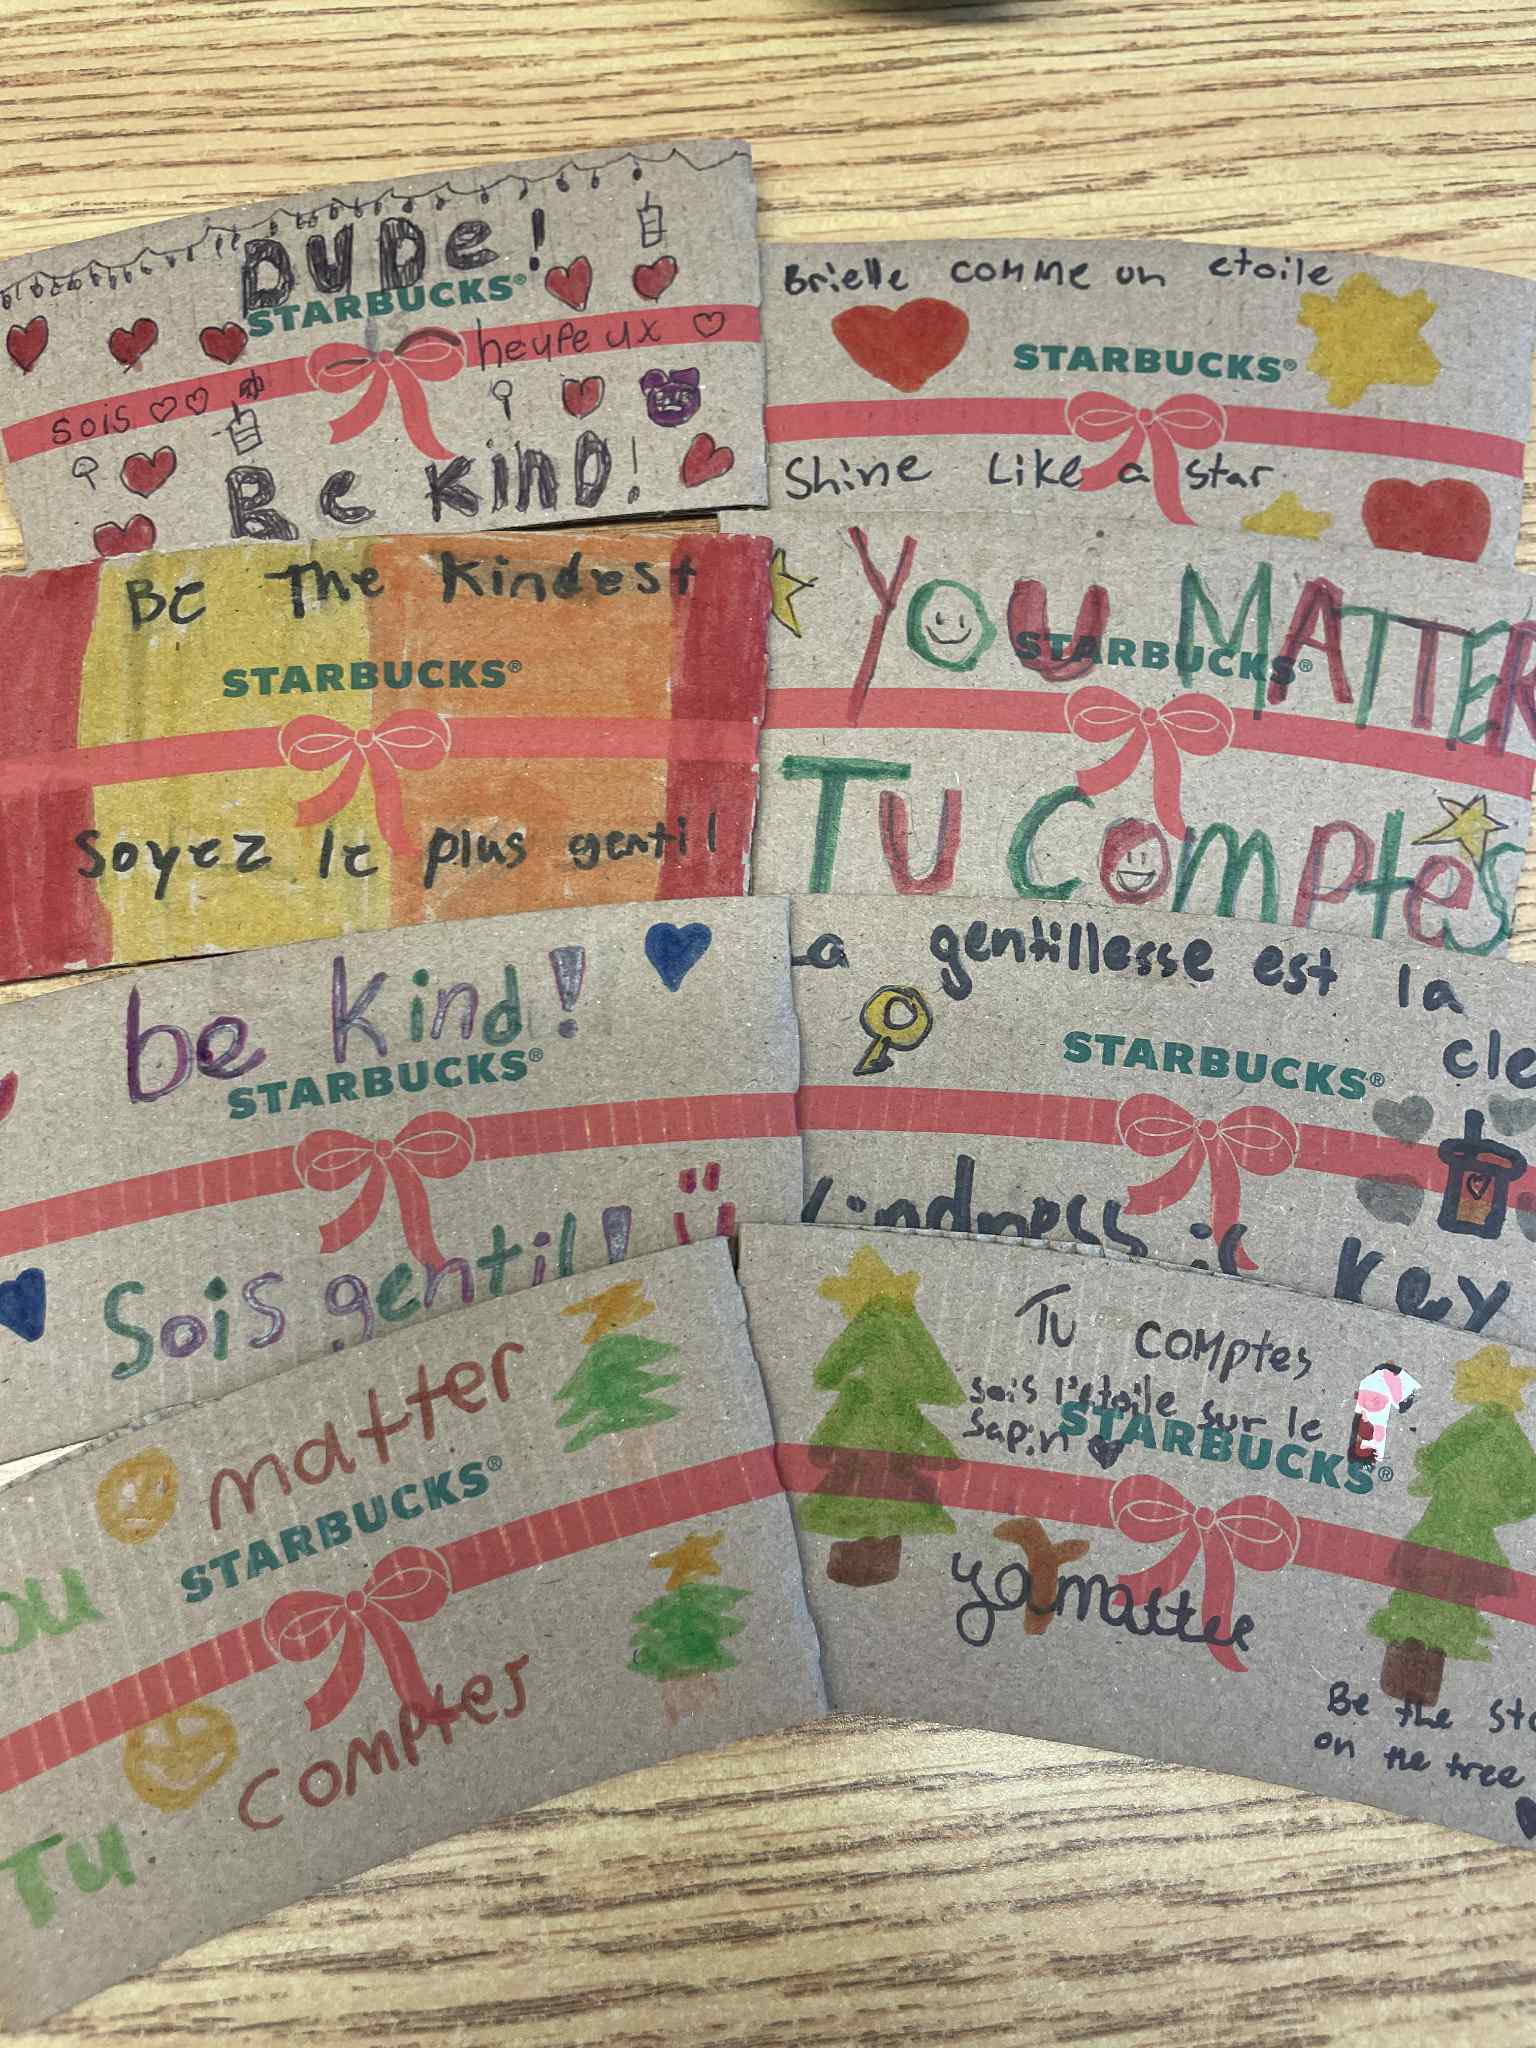 DUDE!
STARBUCKS®
heureux
sois
Be KinD!
Brielle comme un etoile
STARBUCKS®
Shine Like a star
Be The Kindest
STARBUCKS®
Soyez le plus gentil
YOU MATTER
STARBUCKS®
TU Comptes
be kind!
STARBUCKS®
Sois gentil!
La gentillesse est la
cle
STARBUCKS®
Kindness is Key
matter
STARBUCKS®
ou
comptes
Tu
Tu comptes
sois l'etoile sur le
sapin
STARBUCKS®
ya matter
Be the sta
on the tree